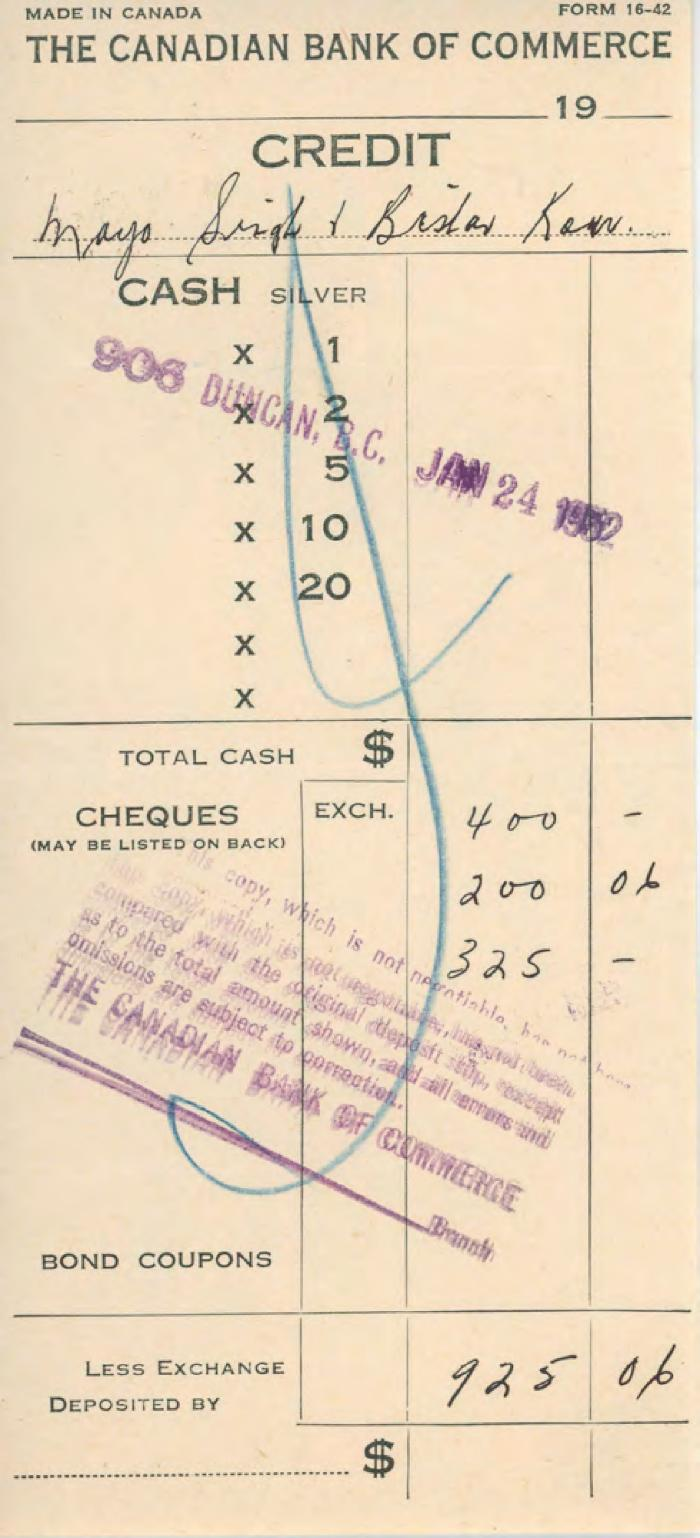 MADE IN CANADA FORM 16-42
THE CANADIAN BANK OF COMMERCE
19
CREDIT
Mayo Singh & Bistar Kaur.
CASH SILVER
X 1
X 2
X 5
X 10
X 20
X
X
906 DUNCAN, B.C. JAN 24 1952
TOTAL CASH $
CHEQUES EXCH. 400 -
(MAY BE LISTED ON BACK)
200 06
325 -
This copy, which is not negotiable, has not been
compared with the original deposit slip, except
as to the total amount shown, and all errors and
omissions are subject to correction.
THE CANADIAN BANK OF COMMERCE
Branch
BOND COUPONS
LESS EXCHANGE 925 06
DEPOSITED BY
$